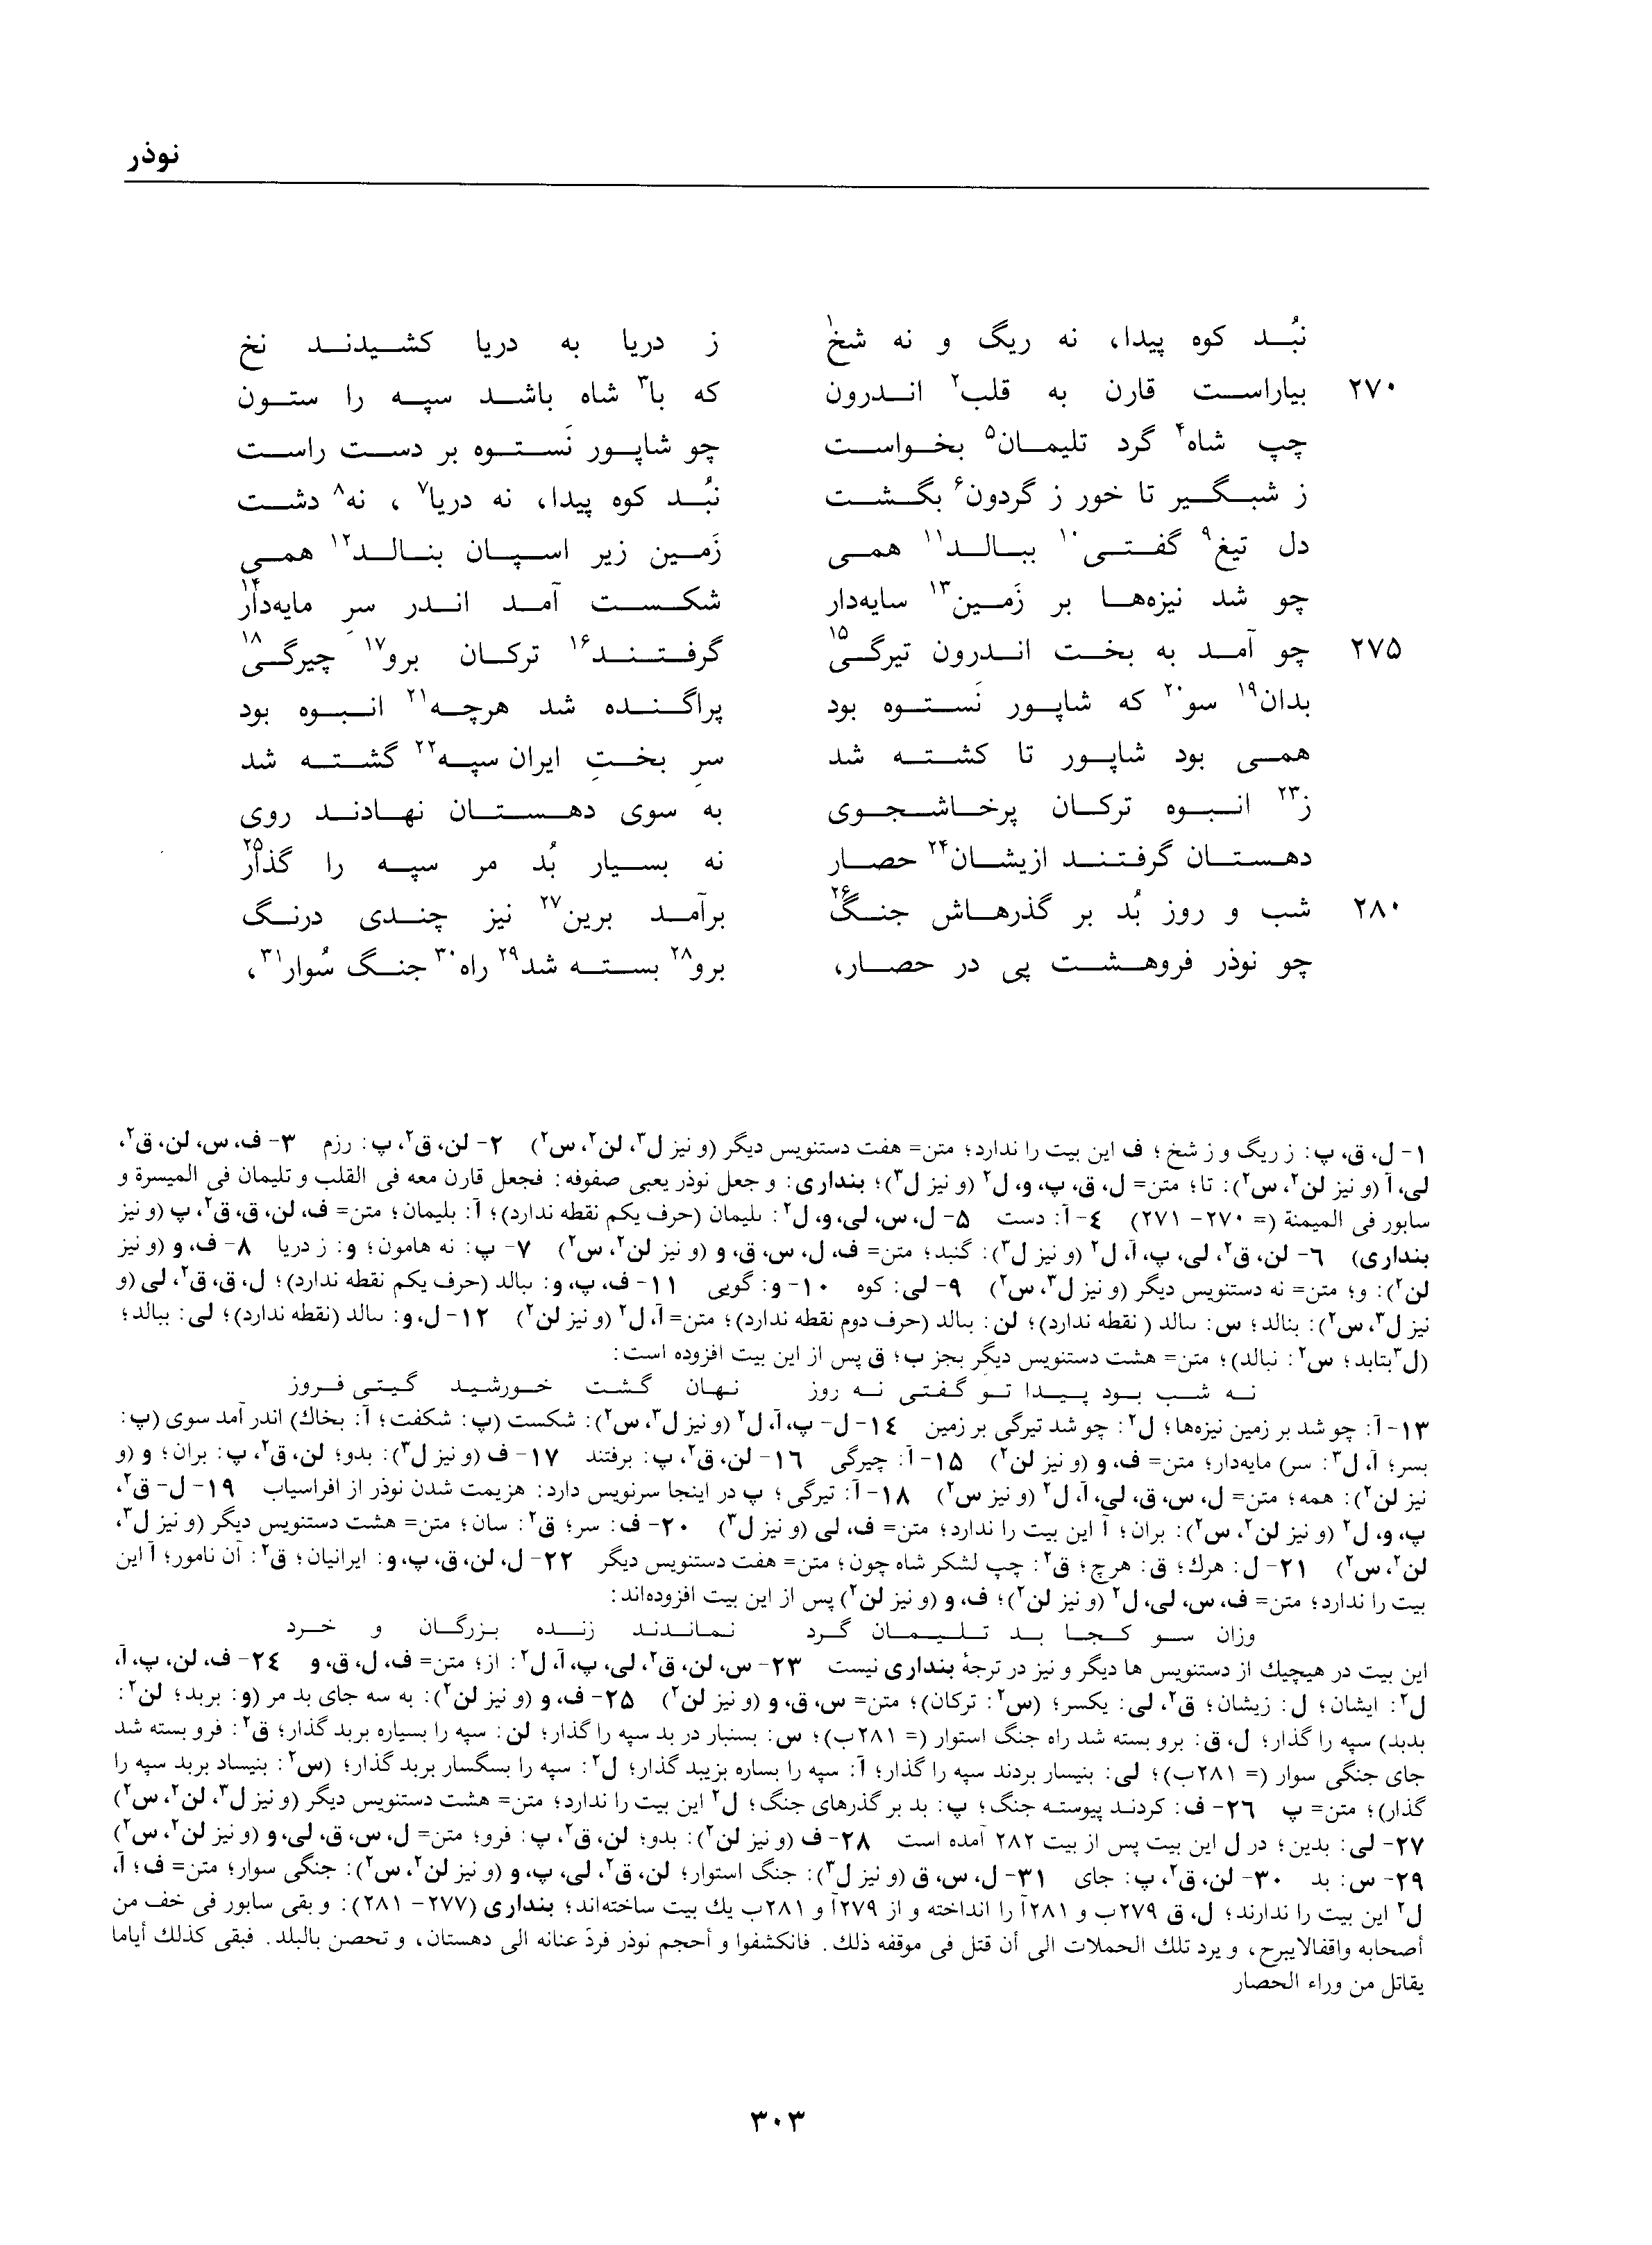 نوذر
نبُد کوه پیدا، نه ریگ و نه شخ۱ ز دریا به دریا کشیدند نخ
۲۷۰ بیاراست قارن به قلب۲ اندرون که با۳ شاه باشد سپه را ستون
چپ شاه۴ گرد تلیمان۵ بخواست چو شاپور نَستوه بر دست راست
ز شبگیر تا خور ز گردون۶ بگشت نبُد کوه پیدا، نه دریا۷، نه۸ دشت
دل تیغ۹ گفتی۱۰ ببالد۱۱ همی زَمین زیر اسپان بنالد۱۲ همی
چو شد نیزه‌ها بر زَمین۱۳ سایه‌دار شکست آمد اندر سرِ مایه‌دار۱۴
۲۷۵ چو آمد به بخت اندرون تیرگی۱۵ گرفتند۱۶ ترکان برو۱۷ چیرگی۱۸
بدان۱۹ سو۲۰ که شاپور نَستوه بود پراگنده شد هرچه۲۱ انبوه بود
همی بود شاپور تا کشته شد سرِ بختِ ایران سپه۲۲ گشته شد
ز۲۳ انبوه ترکان پرخاشجوی به سوی دهستان نهادند روی
دهستان گرفتند ازیشان۲۴ حصار نه بسیار بُد مر سپه را گذار۲۵
۲۸۰ شب و روز بُد بر گذرهاش جنگ۲۶ برآمد برین۲۷ نیز چندی درنگ
چو نوذر فروهشت پی در حصار، برو۲۸ بسته شد۲۹ راه۳۰ جنگ سُوار۳۱،
۱- ل، ق، پ: ز ریگ و ز شخ؛ ف این بیت را ندارد؛ متن= هفت دستنویس دیگر (و نیز ل۳، لن۲، س۲) ۲- لن، ق۲، پ: رزم ۳- ف، س، لن، ق۲،
لی، آ (و نیز لن۲، س۲): تا؛ متن= ل، ق، پ، و، ل۲ (و نیز ل۳)؛ بنداری: و جعل نوذر یعبی صفوفه: فجعل قارن معه فی القلب و تلیمان فی المیسرة و
سابور فی المیمنة (= ۲۷۰- ۲۷۱) ۴- آ: دست ۵- ل، س، لی، و، ل۲: ٮلیمان (حرف یکم نقطه ندارد)؛ آ: بلیمان؛ متن= ف، لن، ق، ق۲، پ (و نیز
بنداری) ۶- لن، ق۲، لی، پ، آ، ل۲ (و نیز ل۳): گنبد؛ متن= ف، ل، س، ق، و (و نیز لن۲، س۲) ۷- پ: نه هامون؛ و: ز دریا ۸- ف، و (و نیز
لن۲): و؛ متن= نه دستنویس دیگر (و نیز ل۳، س۲) ۹- لی: کوه ۱۰- و: گویی ۱۱- ف، پ، و: ٮبالد (حرف یکم نقطه ندارد)؛ ل، ق، ق۲، لی (و
نیز ل۳، س۲): بنالد؛ س: ٮٮالد ( نقطه ندارد)؛ لن: بٮالد (حرف دوم نقطه ندارد)؛ متن= آ، ل۲ (و نیز لن۲) ۱۲- ل، و: ٮٮالد (نقطه ندارد)؛ لی: ببالد؛
(ل۳بتابد؛ س۲: نبالد)؛ متن= هشت دستنویس دیگر بجز ب؛ ق پس از این بیت افزوده است:
نه شب بود پیدا تو گفتی نه روز نهان گشت خورشید گیتی فروز
۱۳- آ: چو شد بر زمین نیزه‌ها؛ ل۲: چو شد تیرگی بر زمین ۱۴- ل- پ، آ، ل۲ (و نیز ل۳، س۲): شکست (پ: شکفت؛ آ: بخاك) اندر آمد سوی (پ:
بسر؛ آ، ل۳: سر) مایه‌دار؛ متن= ف، و (و نیز لن۲) ۱۵- آ: چیرگی ۱۶- لن، ق۲، پ: برفتند ۱۷- ف (و نیز ل۳): بدو؛ لن، ق۲، پ: بران؛ و (و
نیز لن۲): همه؛ متن= ل، س، ق، لی، آ، ل۲ (و نیز س۲) ۱۸- آ: تیرگی؛ پ در اینجا سرنویس دارد: هزیمت شدن نوذر از افراسیاب ۱۹- ل- ق۲،
پ، و، ل۲ (و نیز لن۲، س۲): بران؛ آ این بیت را ندارد؛ متن= ف، لی (و نیز ل۳) ۲۰- ف: سر؛ ق۲: سان؛ متن= هشت دستنویس دیگر (و نیز ل۳،
لن۲، س۲) ۲۱- ل: هرك؛ ق: هرچ؛ ق۲: چپ لشکر شاه چون؛ متن= هفت دستنویس دیگر ۲۲- ل، لن، ق، پ، و: ایرانیان؛ ق۲: آن نامور؛ آ این
بیت را ندارد؛ متن= ف، س، لی، ل۲ (و نیز لن۲)؛ ف، و (و نیز لن۲) پس از این بیت افزوده‌اند:
وزان سو کجا بد تلیمان گرد نماندند زنده بزرگان و خرد
این بیت در هیچیك از دستنویس ها دیگر و نیز در ترجهٔ بنداری نیست ۲۳- س، لن، ق۲، لی، پ، آ، ل۲: از؛ متن= ف، ل، ق، و ۲۴- ف، لن، پ، آ،
ل۲: ایشان؛ ل: زیشان؛ ق۲، لی: یکسر؛ (س۲: ترکان)؛ متن= س، ق، و (و نیز لن۲) ۲۵- ف، و (و نیز لن۲): به سه جای بد مر (و: بربد؛ لن۲:
بدبد) سپه را گذار؛ ل، ق: برو بسته شد راه جنگ استوار (= ۲۸۱ب)؛ س: بسنبار در بد سپه را گذار؛ لن: سپه را بسیاره بربد گذار؛ ق۲: فرو بسته شد
جای جنگی سوار (= ۲۸۱ب)؛ لی: بنیسار بردند سپه را گذار؛ آ: سپه را بساره بزیبد گذار؛ ل۲: سپه را بسگسار بربد گذار؛ (س۲: بنیساد بربد سپه را
گذار)؛ متن= پ ۲۶- ف: کردند پیوسته جنگ؛ پ: بد بر گذرهای جنگ؛ ل۲ این بیت را ندارد؛ متن= هشت دستنویس دیگر (و نیز ل۳، لن۲، س۲)
۲۷- لی: بدین؛ در ل این بیت پس از بیت ۲۸۲ آمده است ۲۸- ف (و نیز لن۲): بدو؛ لن، ق۲، پ: فرو؛ متن= ل، س، ق، لی، و (و نیز لن۲، س۲)
۲۹- س: بد ۳۰- لن، ق۲، پ: جای ۳۱- ل، س، ق (و نیز ل۳): جنگ استوار؛ لن، ق۲، لی، پ، و (و نیز لن۲، س۲): جنگی سوار؛ متن= ف؛ آ،
ل۲ این بیت را ندارند؛ ل، ق ۲۷۹ب و ۲۸۱آ را انداخته و از ۲۷۹آ و ۲۸۱ب یك بیت ساخته‌اند؛ بنداری (۲۷۷- ۲۸۱): و بقی سابور فی خف من
أصحابه واقفالایبرح، و یرد تلك الحملات الی أن قتل فی موقفه ذلك. فانکشفوا و أحجم نوذر فردّ عنانه الی دهستان، و تحصن بالبلد. فبقی کذلك أیاما
یقاتل من وراء الحصار
۳۰۳